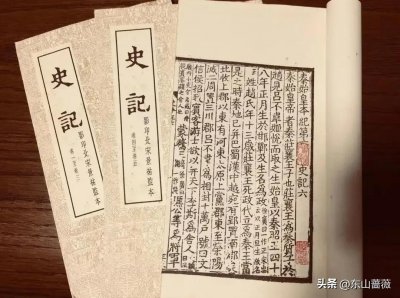 史記
影印北宋景祐監本
卷一至卷三
史記
影印北宋景祐監本
卷四至卷五
秦始皇本紀第六 史記六
秦始皇帝者秦莊襄王子也莊襄王為秦質子於
趙見呂不韋姬悅而取之生始皇以秦昭王四十
八年正月生於邯鄲及生名為政
姓趙氏年十三歲莊襄王死政代立為秦王當
是之時秦地已并巴蜀漢中越宛有郢置南郡矣
北收上郡以東有河東太原上黨郡東至滎陽
滅二周置三川郡呂不韋為相封十萬戶號曰文
信侯招致賓客游士欲以并天下李斯為舍人
蒙驁
公等為將軍
头条 @东山蔷薇